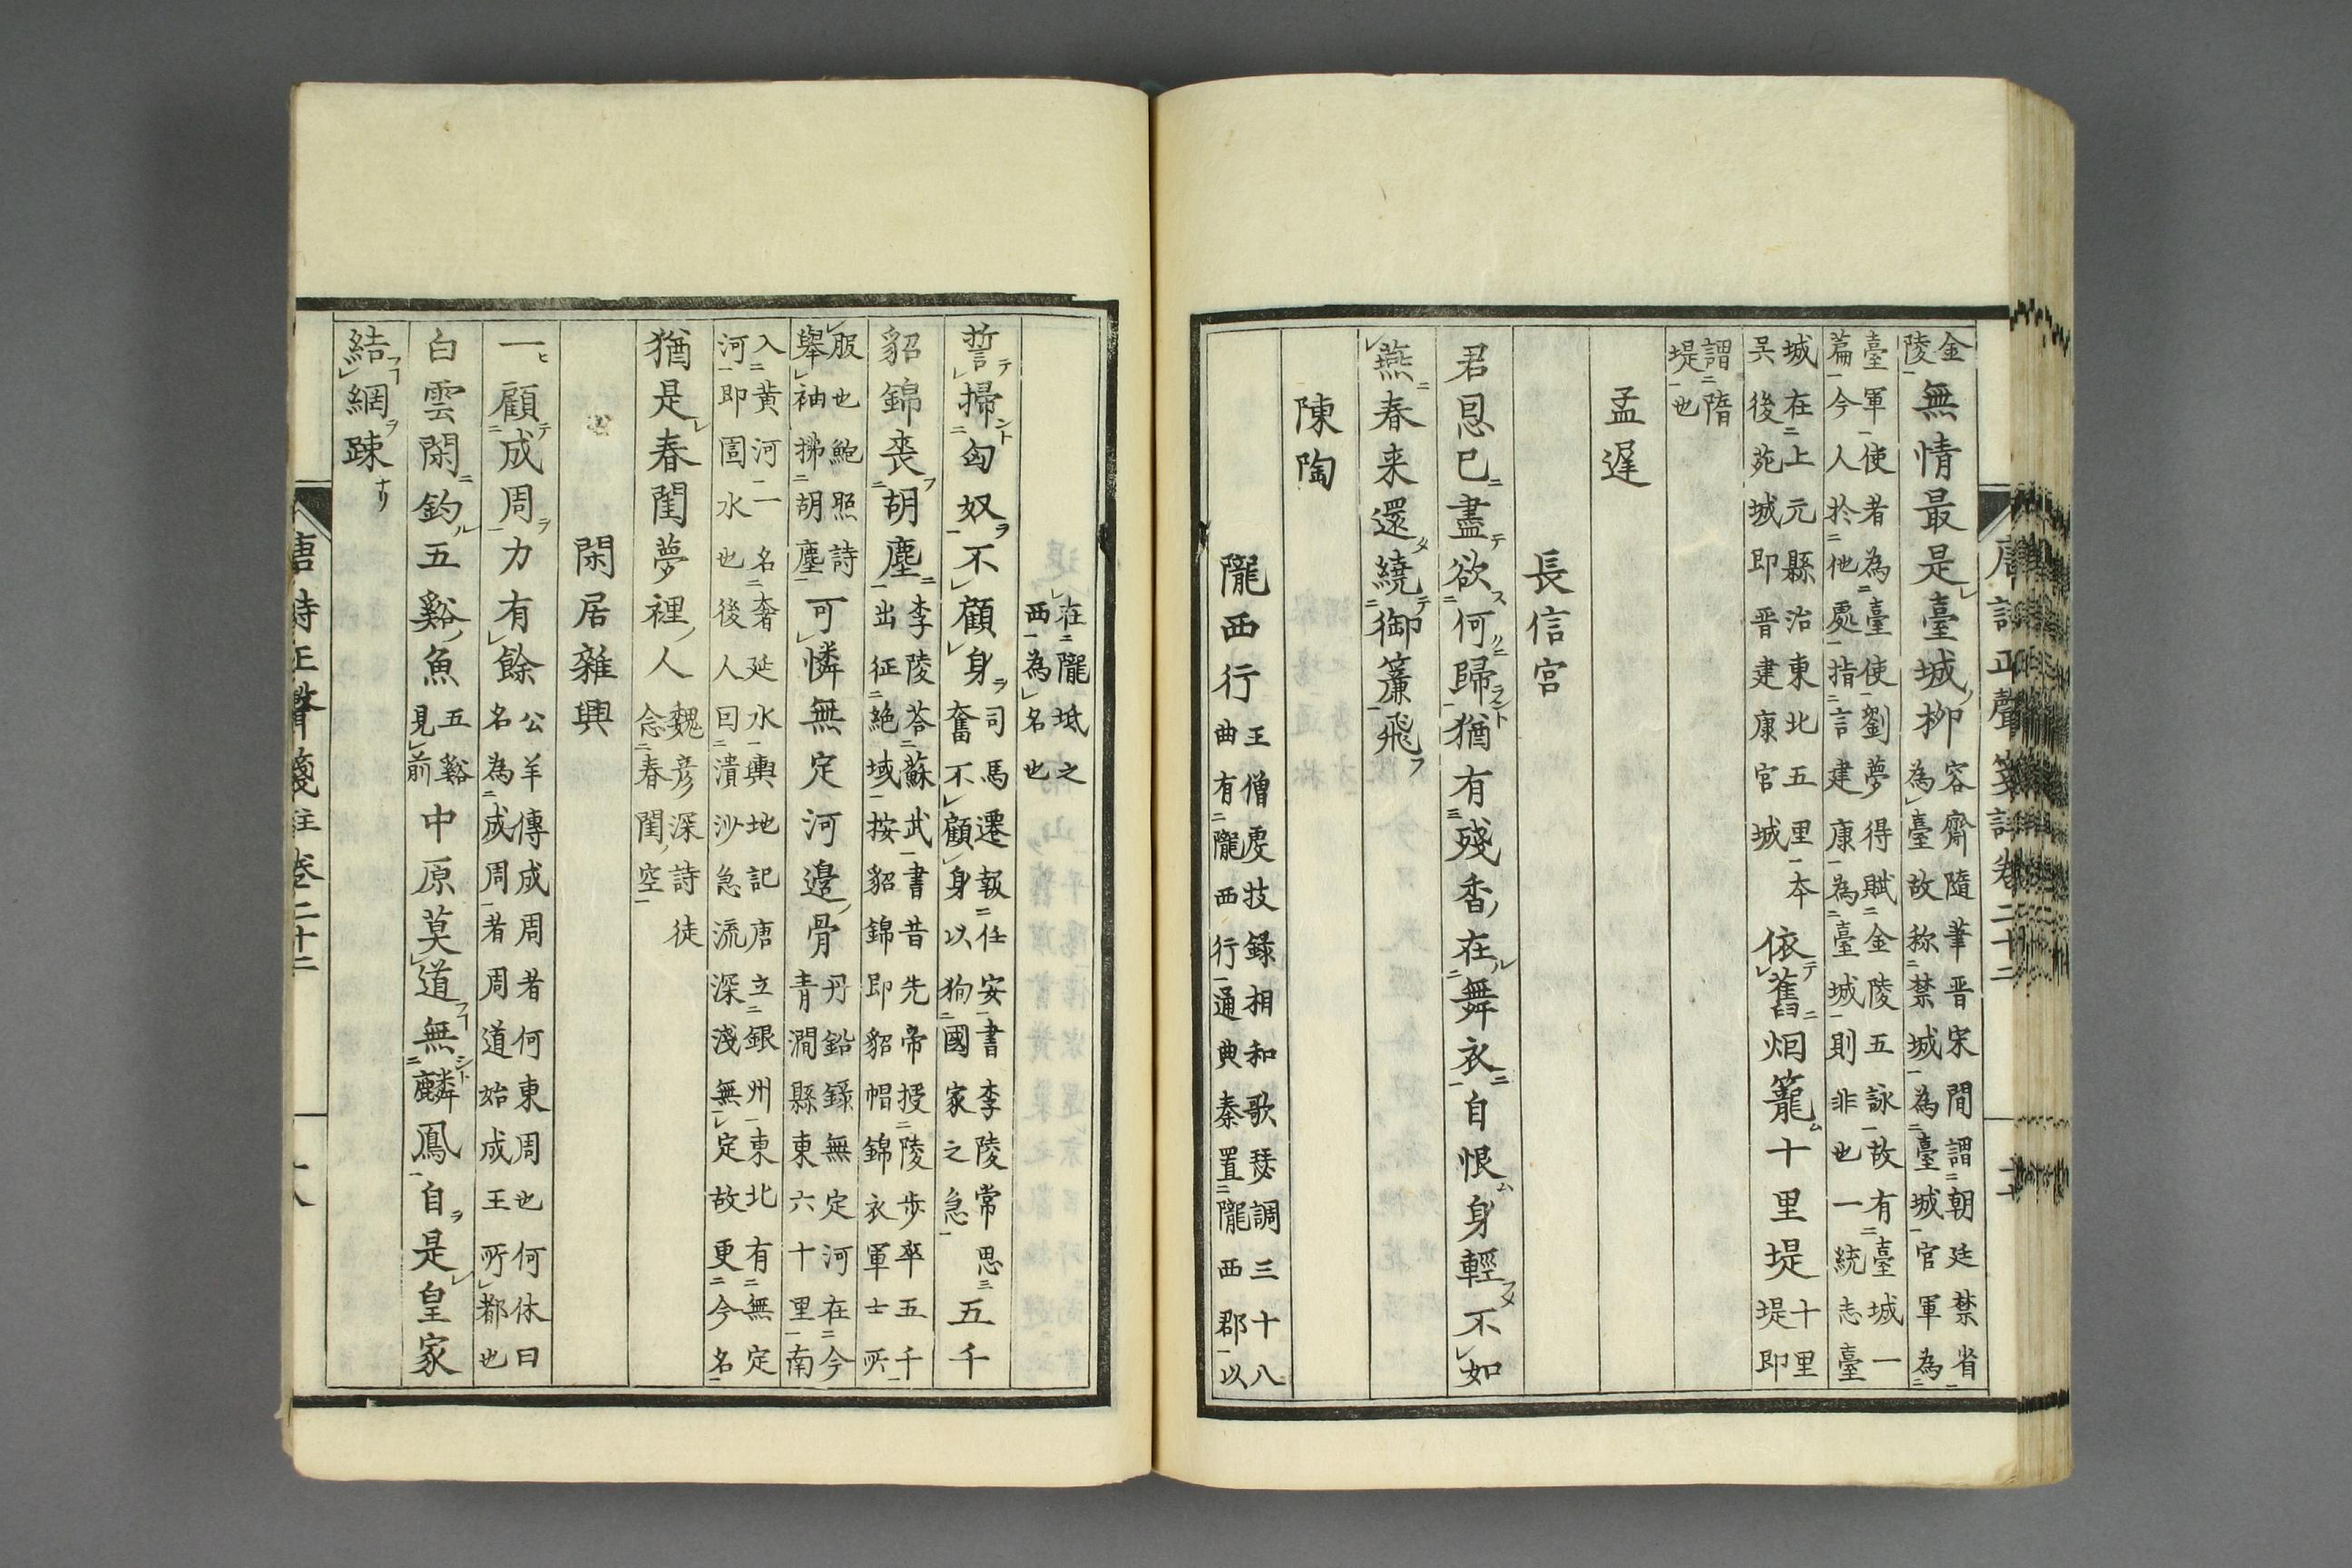 金陵無情最是臺城柳容齋隨筆晋宋間謂朝廷禁省為臺故称禁城為臺城官軍為
臺軍使者為臺使劉夢得賦金陵五詠故有臺城一篇今人於他處指言建康為臺城則非也一統志臺
城在上元縣治東北五里本吴後苑城即晋建康宫城依舊烟籠十里堤十里堤即
謂隋堤也
孟遅
長信宮
君恩已盡欲何歸猶有殘香在舞衣自恨身輕不如
燕春来還繞御簾飛
陳陶
隴西行王僧虔技録相和歌瑟調三十八曲有隴西行通典秦置隴西郡以
在隴坻之西為名也
誓掃匈奴不顧身司馬遷報任安書李陵常思奮不顧身以狥國家之急五千
貂錦喪胡塵李陵荅蘇武書昔先帝授陵歩卒五千出征絶域按貂錦即貂帽錦衣軍士所
服也鮑照詩舉袖拂胡塵可憐無定河邉骨丹鉛録無定河在今青澗縣東六十里南
入黄河一名奢延水輿地記唐立銀州東北有無定河即圁水也後人因潰沙急流深淺無定故更今名
猶是春閨夢裡人魏彦深詩徒念春閨空
閑居雜興
一顧成周力有餘公羊傳成周者何東周也何休曰名為成周者周道始成王所都也
白雲閑釣五谿魚五谿見前中原莫道無麟鳳自是皇家
結網踈
唐詩正聲箋註卷二十二